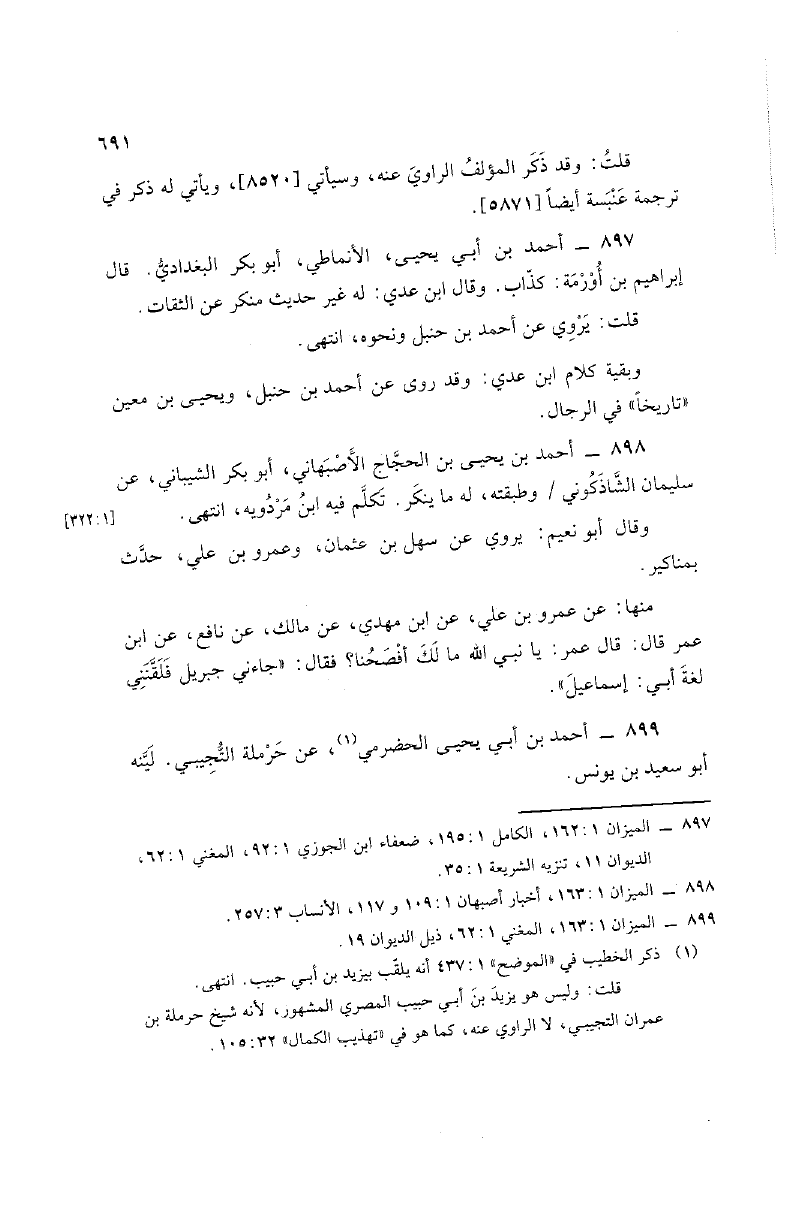 ٦٩١
قلتُ: وقد ذَكَر المؤلفُ الراويَ عنه، وسيأتي [٨٥٢٠]، ويأتي له ذكر في
ترجمة عَنْبَسة أيضاً [٥٨٧١].
٨٩٧ ــ أحمد بن أبي يحيى، الأنماطي، أبو بكر البغداديُّ. قال
إبراهيم بن أُوْرْمَة: كذّاب. وقال ابن عدي: له غير حديث منكر عن الثقات.
قلت: يَرْوِي عن أحمد بن حنبل ونحوه، انتهى.
وبقية كلام ابن عدي: وقد روى عن أحمد بن حنبل، ويحيى بن معين
«تاريخاً» في الرجال.
٨٩٨ ــ أحمد بن يحيى بن الحجَّاج الأَصْبَهاني، أبو بكر الشيباني، عن
سليمان الشَّاذَكُوني / وطبقته، له ما ينكَر. تَكلَّم فيه ابنُ مَرْدُويه، انتهى. [٣٢٢:١]
وقال أبو نعيم: يروي عن سهل بن عثمان، وعمرو بن علي، حدَّث
بمناكير.
منها: عن عمرو بن علي، عن ابن مهدي، عن مالك، عن نافع، عن ابن
عمر قال: قال عمر: يا نبي الله ما لَكَ أفْصَحُنا؟ فقال: «جاءني جبريل فَلَقَّنَنِي
لغةَ أبي: إسماعيلَ».
٨٩٩ ــ أحمد بن أبي يحيى الحضرمي(١)، عن حَرْملة التُّجِيبي. لَيَّنه
أبو سعيد بن يونس.
٨٩٧ ــ الميزان ١٦٢:١، الكامل ١٩٥:١، ضعفاء ابن الجوزي ٩٢:١، المغني ٦٢:١،
الديوان ١١، تنزيه الشريعة ٣٥:١.
٨٩٨ ــ الميزان ١٦٣:١، أخبار أصبهان ١٠٩:١ و ١١٧، الأنساب ٢٥٧:٣.
٨٩٩ ــ الميزان ١٦٣:١، المغني ٦٢:١، ذيل الديوان ١٩.
(١) ذكر الخطيب في «الموضح» ٤٣٧:١ أنه يلقّب بيزيد بن أبي حبيب. انتهى.
قلت: وليس هو يزيدَ بنَ أبي حبيب المصري المشهور، لأنه شيخ حرملة بن
عمران التجيبي، لا الراوي عنه، كما هو في «تهذيب الكمال» ١٠٥:٣٢.